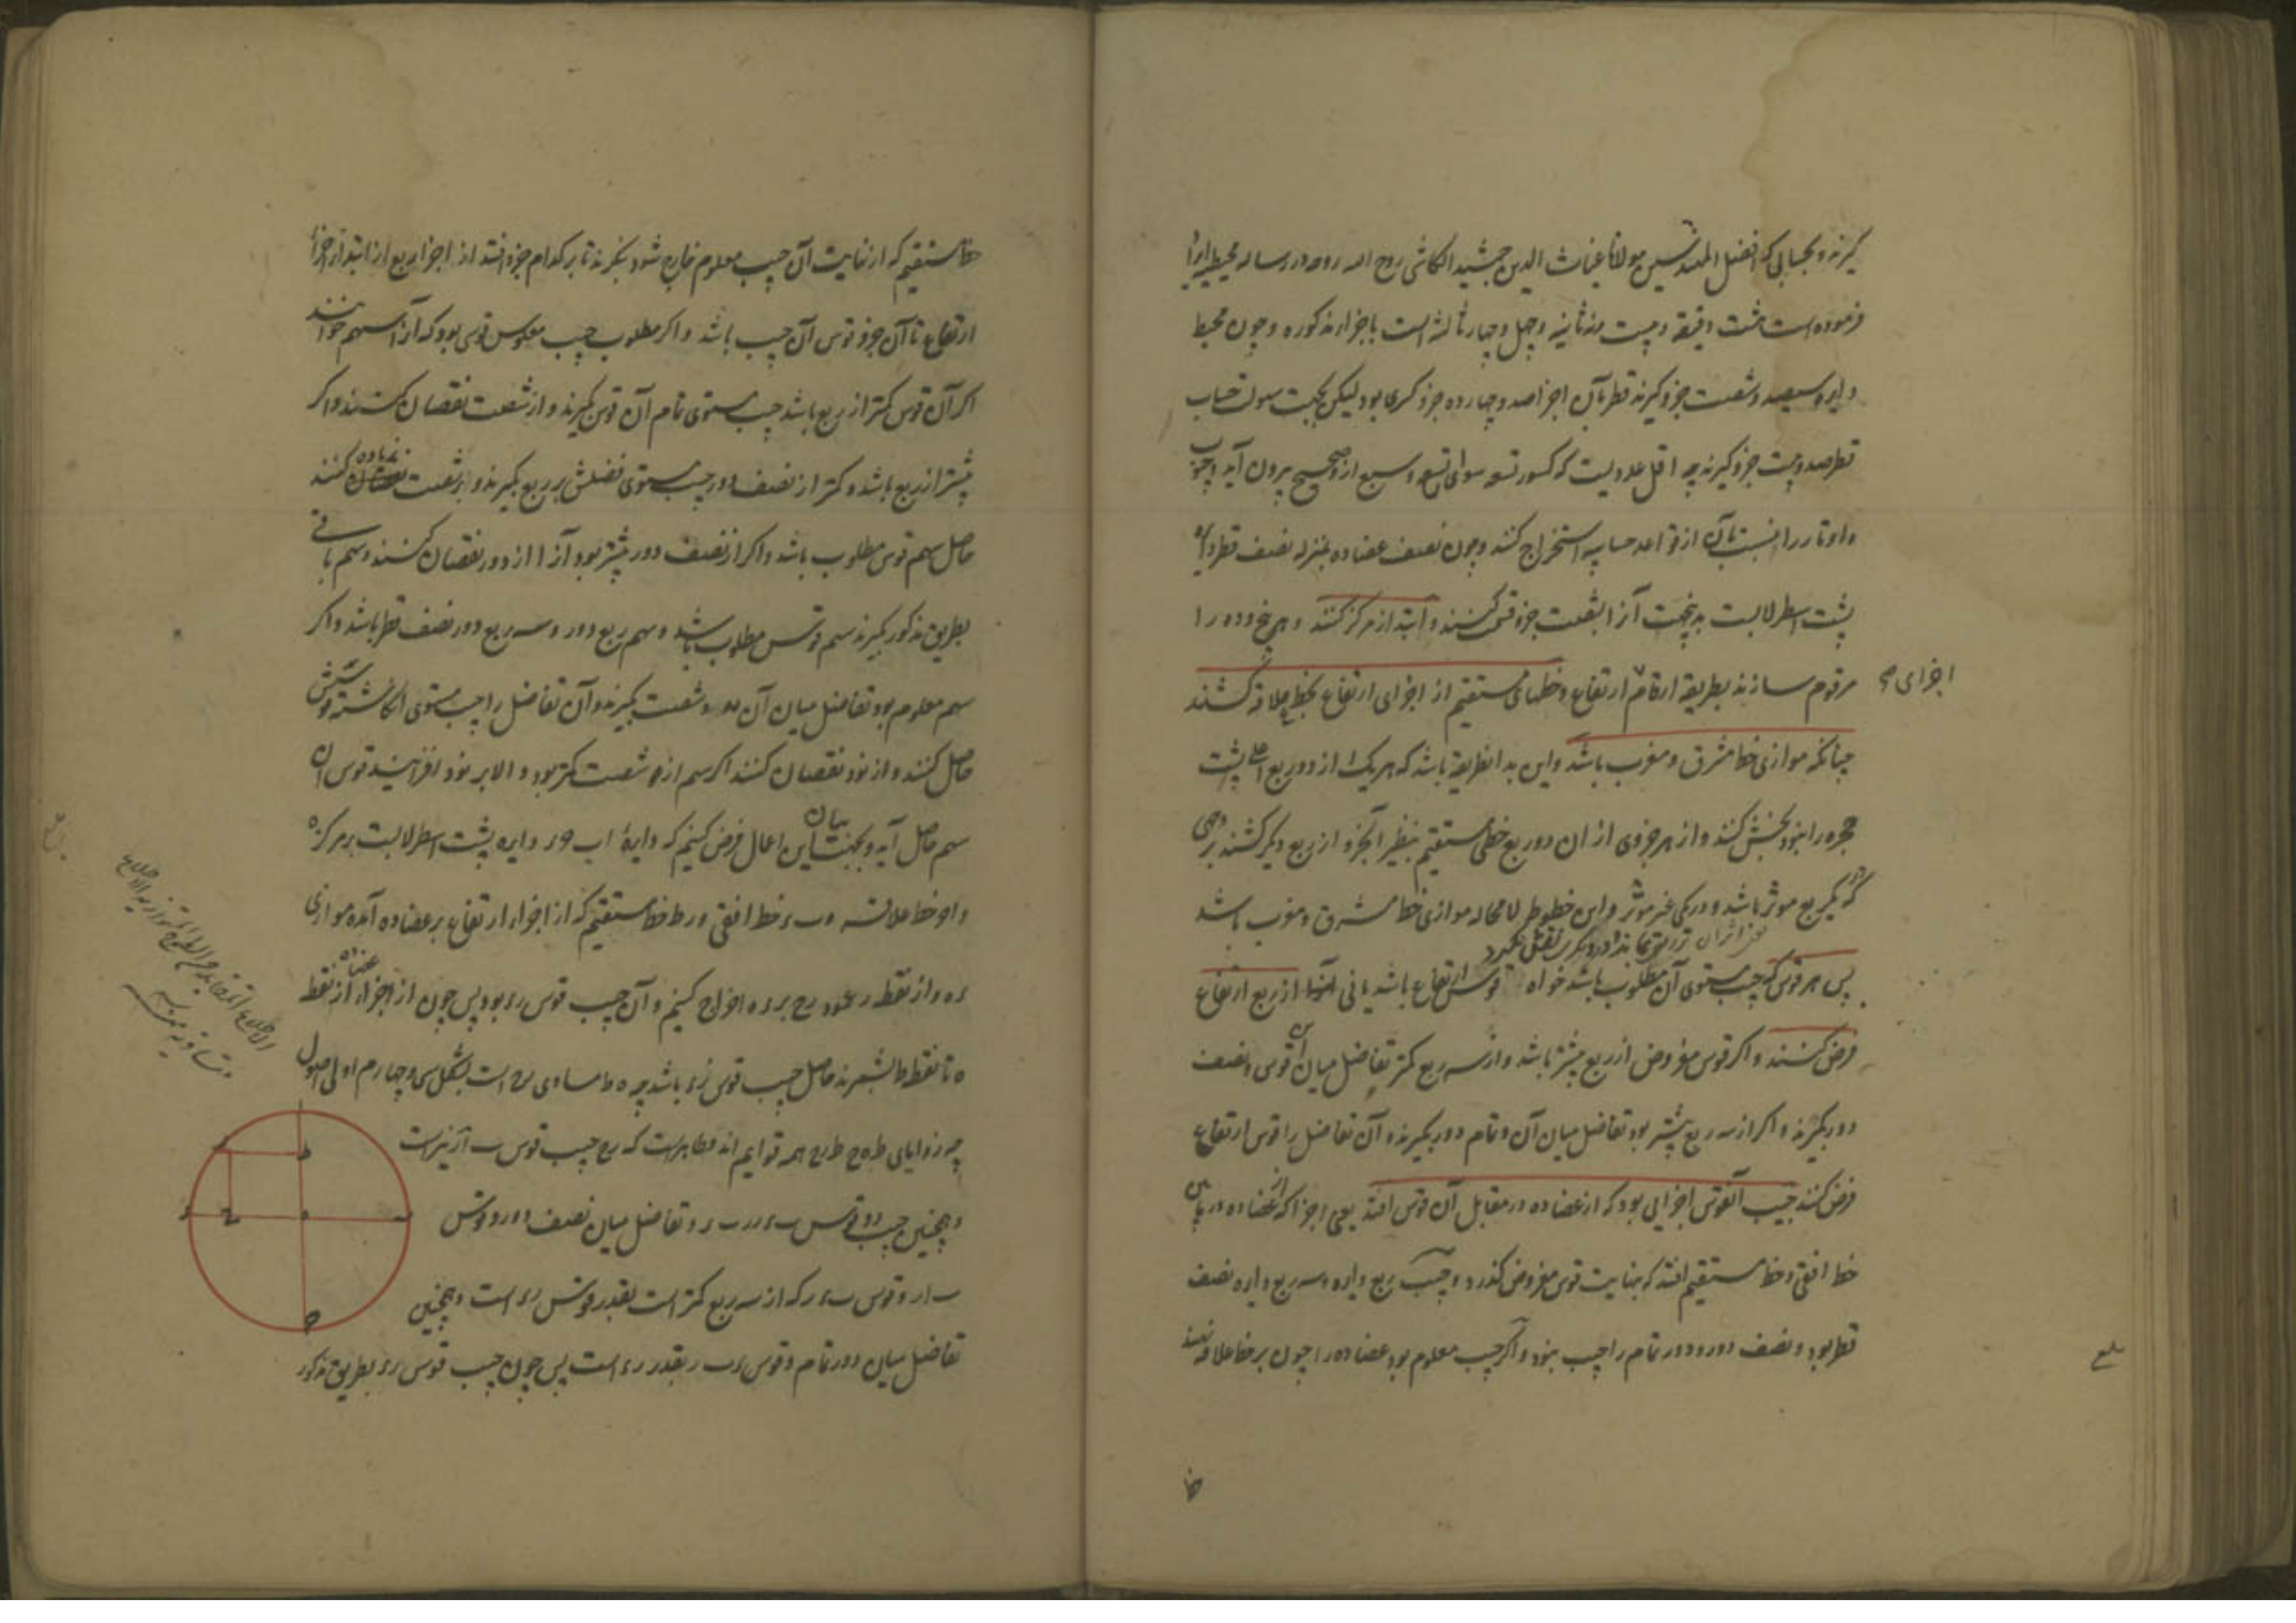 گیرند و بحسابی که افضل المهندسین مولانا غیاث الدین جمشید الکاشی روح الله روحه در رساله محیطیه ایراد
فرموده است هشت دقیقه و بیست و نه ثانیه و چهل و چهار ثالثه است باجزاء مذکوره و چون محیط
دایره سیصد و شصت جزو گیرند قطر بآن اجزا صد و چهارده جزو کسری بود لیکن بجهت سهولت حساب
قطر صد و بیست جزو گیرند چه اقل عددیست که کسور تسعه سوای تسع و سبع ازو صحیح بیرون آید و جیوب
و اوتار را بنسبت بآن از قواعد حسابیه استخراج کنند و چون نصف عضاده بمنزله نصف قطر دایره
پشت اسطرلابست بدینجهت آنرا بشصت جزو قسمت کنند و ابتدا از مرکز کنند و هر پنج و ده را
مرقوم سازند بطریقه ارقام ارتفاع و خطهای مستقیم از اجزای ارتفاع بخط علاقه کشند
اجزای
چنانکه موازی خط مشرق و مغرب باشد و این بدانطریقه باشد که هر یک از دو ربع اعلی پشت
حجره را بنود بخش کنند و از هر جزوی از ان دو ربع خطی مستقیم بنظیر آنجزو از ربع دیگر کشند بروجهی
که در یکربع موثر باشد و در یکی غیر موثر و این خطوط لا محاله موازی خط مشرق و مغرب باشد
پس هر قوس که جیب مستوی آن مطلوب باشد خواه قوس ارتفاع باشد یا نی آنرا از ربع ارتفاع
فرض کنند و اگر قوس مفروض از ربع بیشتر باشد و از سه ربع کمتر تفاضل میان آن قوس و نصف
دور بگیرند و اگر از سه ربع بیشتر بود تفاضل میان آن و تمام دور بگیرند و آن تفاضل را قوس ارتفاع
فرض کنند جیب آنقوس اجزایی بود که از عضاده در مقابل آن قوس افتد یعنی اجزا که از عضاده در میان
خط افقی و خط مستقیم افتد که بنهایت قوس مفروض گذرد و جیب ربع دایره و سه ربع دایره نصف
قطر بود و نصف دور و دور تمام را جیب نبود و اگر جیب معلوم بود عضاده را چون بر خط علاقه نهند
بلغ
خط
خط مستقیم که از نهایت آن جیب معلوم خارج شود بنگرند تا بر کدام جزو افتد از اجزاء ربع از ابتدا از اجزاء
ارتفاع تا آن جزو قوس آن جیب باشد و اگر مطلوب جیب معکوس قوسی بود که آنرا سهم خوانند
اگر آن قوس کمتر از ربع باشد جیب مستوی تمام آن قوس گیرند و از شصت نقصان کنند و اگر
بیشتر از ربع باشد و کمتر از نصف دور جیب مستوی فضلش بر ربع بگیرند و بر شصت زیاده کنند
حاصل سهم قوس مطلوب باشد و اگر از نصف دور بیشتر بود آنرا از دور نقصان کنند و سهم باقی
بطریق مذکور بگیرند سهم قوس مطلوب باشد و سهم ربع دور و سه ربع دور نصف قطر باشد و اگر
سهم معلوم بود تفاضل میان آن و شصت بگیرند و آن تفاضل را جیب مستوی انگاشته قوسش
حاصل کنند و از نود نقصان کنند اگر سهم از شصت کمتر بود و الا بر نود افزایند قوس آن
سهم حاصل آید و بجهت بیان این اعمال فرض کنیم که دایرهٔ اب ح د دایره پشت اسطرلابست بر مرکز ه
و اح خط علاقه و ب د خط افقی و ر ط خط مستقیم که از اجزاء ارتفاع بر عضاده آمده موازی
ء ه و از نقطه ر عمود رح بر ء ه اخراج کنیم و آن جیب قوس رء بود پس چون از اجزاء عضاده از نقطه
ه تا نقطه ط بشمرند حاصل جیب قوس رء باشد چه ه ط مساوی رح است بشکل سی و چهارم اولی اصول
چه زوایای ط ه ح ط رح همه قوایم اند و ظاهرست که رح جیب قوس ب ا ر نیزست
و همچنین جیب دو قوس ب ء ر ب ء و تفاضل میان نصف دور و قوس
ب ا ر و قوس ب ء ر که از سه ربع کمتر است بقدر قوس رء است و همچنین
تفاضل میان دور تمام و قوس ء ب ر بقدر رء است پس چون جیب قوس رء بطریق مذکور